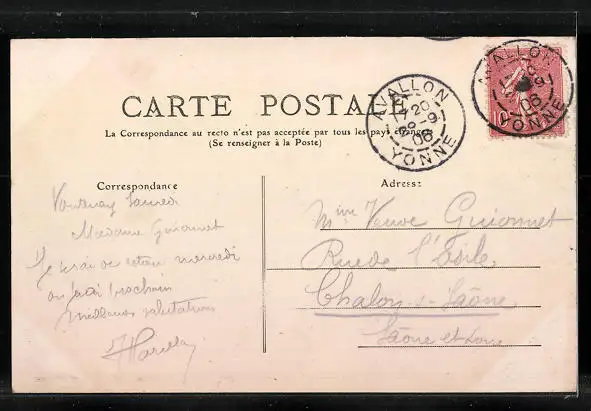 CARTE POSTALE
La Correspondance au recto n'est pas acceptée par tous les pays étrangers
(Se renseigner à la Poste)
AVALLON
20
28-9
06
YONNE
AVALLON
06
YONNE
10
Correspondance
Samedi
Madame Guionnet
mercredi
ou jeudi prochain
meilleures salutations
Adresse
Mme Veuve Guionnet
Rue de l'Asile
Chalon s- Saône
Saône et Loire